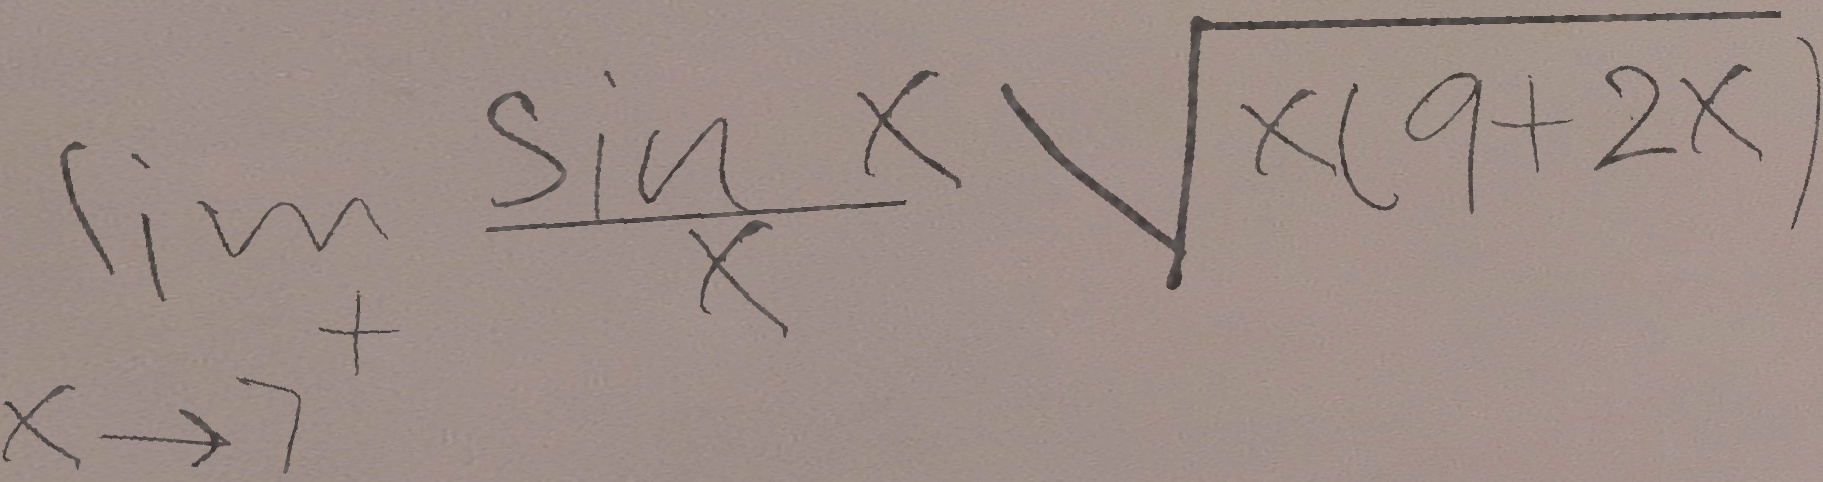 lim_{x→7^+} \frac{sin x}{x} \sqrt{x(9+2x)}